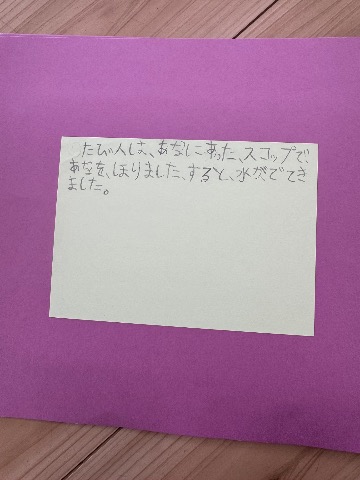 たびの人は、あなにあった、スコップで、
あなを、ほりました、すると、水がでてき
ました。